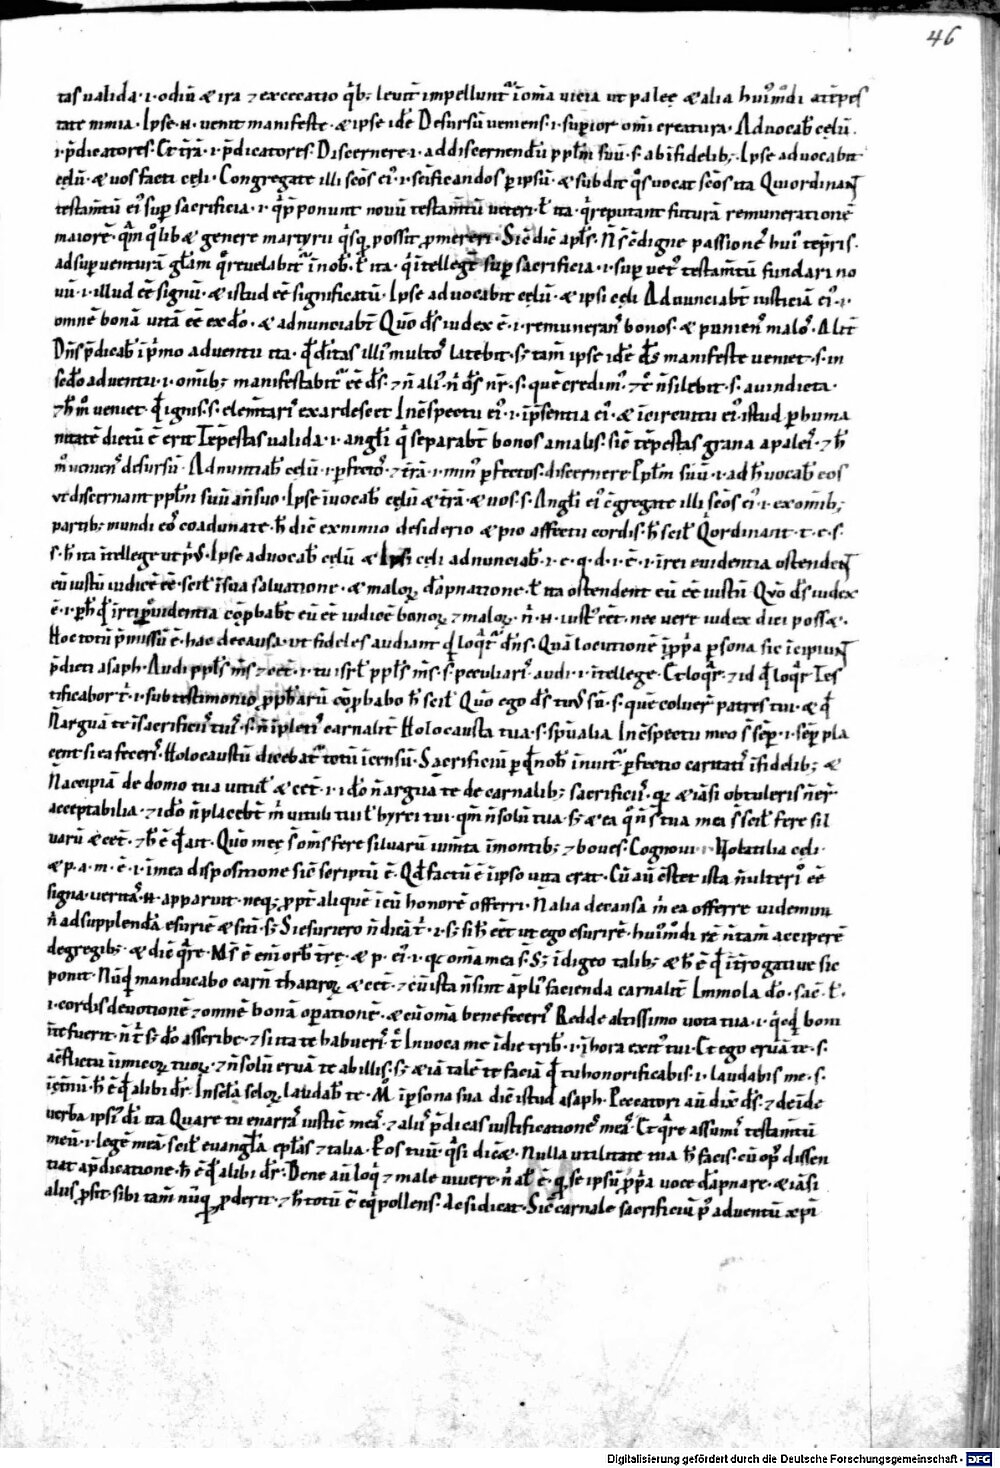 46
tas ualida · i · odiū & ira ⁊ excecatio q̇b; leuit̄ impellunt͛ ī om̄ia uicia ut paleę & alia hui᷒m̊di a tēpes
tate nimia · Ipse · n̄ · uenit manifeste · & ipse ide͛ Desursū ueniens · i · sup̱ior om̄i creatura · Aduocab͛ cęlū ·
i · p̄dicatores · Et t͛rā · i · p̄dicatores · Discernere · i · ad discernendū pp̄lm̄ suū · s · ab īfidelib; · Ipse aduocabit
cęlū · & uos facti cęli · Congregate illi sc̄os ei᷒ · i · sc̄ificandos p̱ ipsū · & subdit q̇s uocat sc̄os ita Qui ordinant
testam̄tū ei᷒ sup̱ sacrificia · i · q̇ p̄ponunt nouū testam̄tū ueteri · ł ita · q̇ reputant futurā remunerationē
maiorē · q̄m q̊lib& genere martyrii q̇sq̱ possit p̱mereri · Sic̄ dic̄ apl̄s · N̄ s̄ c̄digne passiones hui᷒ tēp̱ris ·
ad sup̱ uenturā gl̄am q̊ reuelabit͛ in nob̄ · ł ita · q̇ ītellege͛t sup̱ sacrificia · i · sup̱ uet᷒ testam̄tū fundari no
uū · i · illud ee͛ signū · & istud ee͛ significatū · Ipse aduocabit cęlū · & ipsi cęli Adnunciabt̄ iusticiā ei᷒ · i ·
omnē bonā uitā ee͛ ex do͛ · & adnunciabt̄ Quō ds̄ iudex ē · i · remunerans bonos · & puniens malos · Alit͛
Dn̄s p̄dicab͛ ī p̱mo aduentu ita · q͛d d͛itas illi᷒ multos latebit · s; tam̄ ipse ide͛ ds̄ manifeste ueniet · s · in
sedo͛ aduentu · i · omīb; manifestabit͛ ee͛ ds̄ · ⁊ n̄ ali᷒ n̄ ds̄ nr̄ · s · que͛ credim᷒ · ⁊ c̄ n̄ silebit · s · a uindicta ·
⁊ h̄ m̊ ueniet · q͛d ignis · s · elem̄taris exardescet In c̄spectu ei᷒ · i · p̄sentia ei᷒ · & ī circuitu ei᷒ · istud p̱ huma
nitatē dictū ē erit Tēpestas ualida · i · angl̄i q̇ separabt̄ bonos a malis · sic̄ tēpestas grana a paleis · ⁊ h̄
m̊ ueniens desursū · Adnuntiab͛ cęlū · i · p̱fectos · ⁊ t͛rā · i · min᷒ p̱fectos · discernere Pplm̄ suū · i · ad h̄ uocab͛ eos
ut discernant pplm̄ suū a n̄ suo · Ipse īuocab͛ cęlū & t͛rā & uos · s · Angl̄i ei᷒ c̄gregate illi sc̄os ei᷒ · i · ex omīb;
partib; mundi eos coadunate · h̄ dic̄ ex nimio desiderio & pio affectu cordis · h̄ scil̄ Q ordinant · t · e · s ·
s · h̄ ita ītellege ut p᷒ · Ipse aduocab͛ cęlū & ipsi cęli adnunciab͛ · i · e · q · d · i · ē · i · ī rei euidentia ostendent
eū iustū iudicē ee͛ · scil̄ ī sua saluatione · & maloꝝ da͛pnatione · ł ita ostendent eū ee͛ iustū Quō ds̄ iudex
ē · i · p̱ h̄ q͛d ī rei p̱uidentia cōp̱babt̄ eū ee͛ iudicē bonoꝝ ⁊ maloꝝ · n̄ · n̄ · iust᷒ ee͛t · nec uere iudex dici poss& ·
Hoc totū p̄missū ē · hac de causa · ut fideles audiant q͛d loq̇t͛ dn̄s · Quā locutionē ī p̱p̱a p̱sona sic īcipiunt
p̄dicti asaph · Audi ppl̄s m̄s ⁊ cet̄ · i · tu isrl̄ ppl̄s m̄s · s · peculiaris · audi · i · ītellege · Et loq̇r · ⁊ id q͛d loq̇r Tes
tificabor t̄ · i · sub testimonio p̱ph͛arū cōp̱babo h̄ scil̄ Quō ego ds̄ tuus sū · s · que͛ coluer̄ patres tui · & q͛d
N̄ arguā te ī sacrificiis tuis · s · n̄ īpletis carnalit͛ Holocausta tua · s · sp̄ualia In c̄spectu meo s̄ sēp̱ · i · sēp̱ pla
cent si ea feceris · Holocaustū dicebat͛ totū īcensū · Sacrificiū p̱ q͛d nob̄ īnuit͛ p̱fectio caritatis ī fidelib; · &
N̄ accipiā de domo tua uitul̄ & cet̄ · i · ido͛ n̄ arguā te de carnalib; sacrificiis · q̱ & iāsi obtuleris n̄ er̄
acceptabilia · ⁊ ido͛ n̄ placebt̄ m̄ uituli tui ł hyrci tui · q̄m n̄ solū tua · s; & ea q̊ n̄ s̄ tua mea s̄ · scil̄ fere sil
uarū & cet̄ · ⁊ h̄ ē q͛d ait · Quō meę s̄ om̄s fere siluarū ium̄ta ī montib; ⁊ boues · Cognoui · Uolatilia cęli ·
& p · a · m · ē · i · ī mea dispositione sic̄ scriptū ē · Qd͛ factū ē ī ipso uita erat · Cū au͛ ee͛t ista n̄ ulteri᷒ ee͛
signa · ueritas · n̄ · apparuit · neq; p̱pt̄ aliquē ī eū honorē offerri · N̄ alia de causa m̄ ea offerre uidemini
n̄ ad supplendā esuriē & sitī · s; Si esuriero n̄ dicā t̄ · i · s; si h̄ ee͛t ut ego esurirē · hui᷒m̊di re͛ n̄ tam̄ acciperē
de gregib; · & dic̄ q̱re · M̄ s̄ ē eni͛ orb̄ t͛rę · & p · ei᷒ · i · q̱ om̄ia mea s̄ · S; īdigeo talib; & h̄ ē q͛d īt͛rogatiue sic
ponit · Nūq̱d manducabo carn̄ thauroꝝ & cet̄ · ⁊ cū ista n̄ sint āpli᷒ facienda carnalit͛ Immola do͛ · sac̄ · ł ·
· i · cordis deuotionē ⁊ omnē bonā op̱ationē · & cū om̄ia bene feceris Redde altissimo uota tua · i · q̇cq̱d boni
īte fuerit · n̄ t̄ s; do͛ asscribe · ⁊ si ita te habueris · t̄c Inuoca me ī die trib͛ · i · ī hora exit᷒ tui · Et ego eruā te · s ·
a c̄flictu inimicoꝝ tuoꝝ · ⁊ n̄ solū eruā te ab illis · s; & iā tale͛ te faciā q͛d tu honorificabis · i · laudabis me · s ·
ī et͛nū · h̄ ē q͛d alibi dr̄ · In sc̄la sc̄loꝝ laudab͛ te · M̊ ī p̱sona sua dic̄ istud asaph · Peccatori au͛ dix̄ ds̄ · ⁊ deīde
uerba ipsi᷒ di͛ ita Quare tu enarras iustic̄ meas · ⁊ ali᷒ p̄dicas iustificationes meas · Et q̱re assumis testam̄tū
meū · i · lege͛ meā · scil̄ euangl̄a epl̄as ⁊ talia · P̱ os tuū · q̱si dic& · Nulla utilitate tua h̄ facis · cū op᷒ dissen
tiat a p̄dicatione · h̄ ē q͛d alibi dr̄ · Bene au͛ loq̇ ⁊ male uiuere · n̄ al̄ ē · q̱ se ipsū p̱p̱a uoce da͛pnare · & iāsi
aliis p̱sit · sibi tam̄ nūq̱ p̱derit · ⁊ h̄ totū ē eq̇pollens · ac si dicat · Sic̄ carnale sacrificiū p᷒ aduentū xp̄i
Digitalisierung gefördert durch die Deutsche Forschungsgemeinschaft - DFG